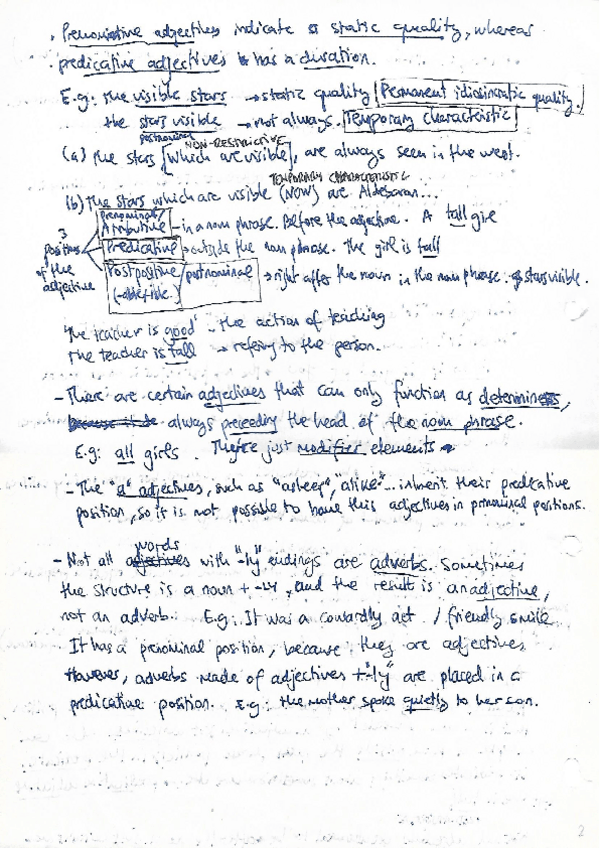 . Prenominative adjectives indicate a static quality, whereas
. predicative adjectives has a duration.
E.g: the visible stars → static quality Permanent idiosincratic quality.
the stars visible → not always. Temporary characteristic
postnominal
NON-RESTRICTIVE
(a) the stars [which are visible], are always seen in the west.
TEMPORARY CHARACTERISTIC
(b) The stars which are visible (NOW) are Aldebaran...
3 positions of the adjective
prenominal/
Attributive - in a noun phrase. Before the adjective. A tall girl
Predicative → outside the noun phrase. The girl is tall
Postpositive / postnominal → right after the noun in the noun phrase. stars visible.
(-able/-ible)
'The teacher is good' - the action of teaching
The teacher is tall → refering to the person.
- There are certain adjectives that can only function as determiners,
because it is always preceding the head of the noun phrase.
E.g: all girls. They're just modifier elements
- The "a" adjectives, such as "asleep", "alike"... inherit their predicative
position, so it is not possible to have this adjectives in prenominal positions.
words
- Not all adjectives with "-ly" endings are adverbs. Sometimes
the structure is a noun + -ly, and the result is an adjective,
not an adverb. E.g: It was a cowardly act / friendly smile
It has a prenominal position, because they are adjectives
However, adverbs made of adjectives +"ly" are placed in a
predicative position. E.g: the mother spoke quietly to her son.
2